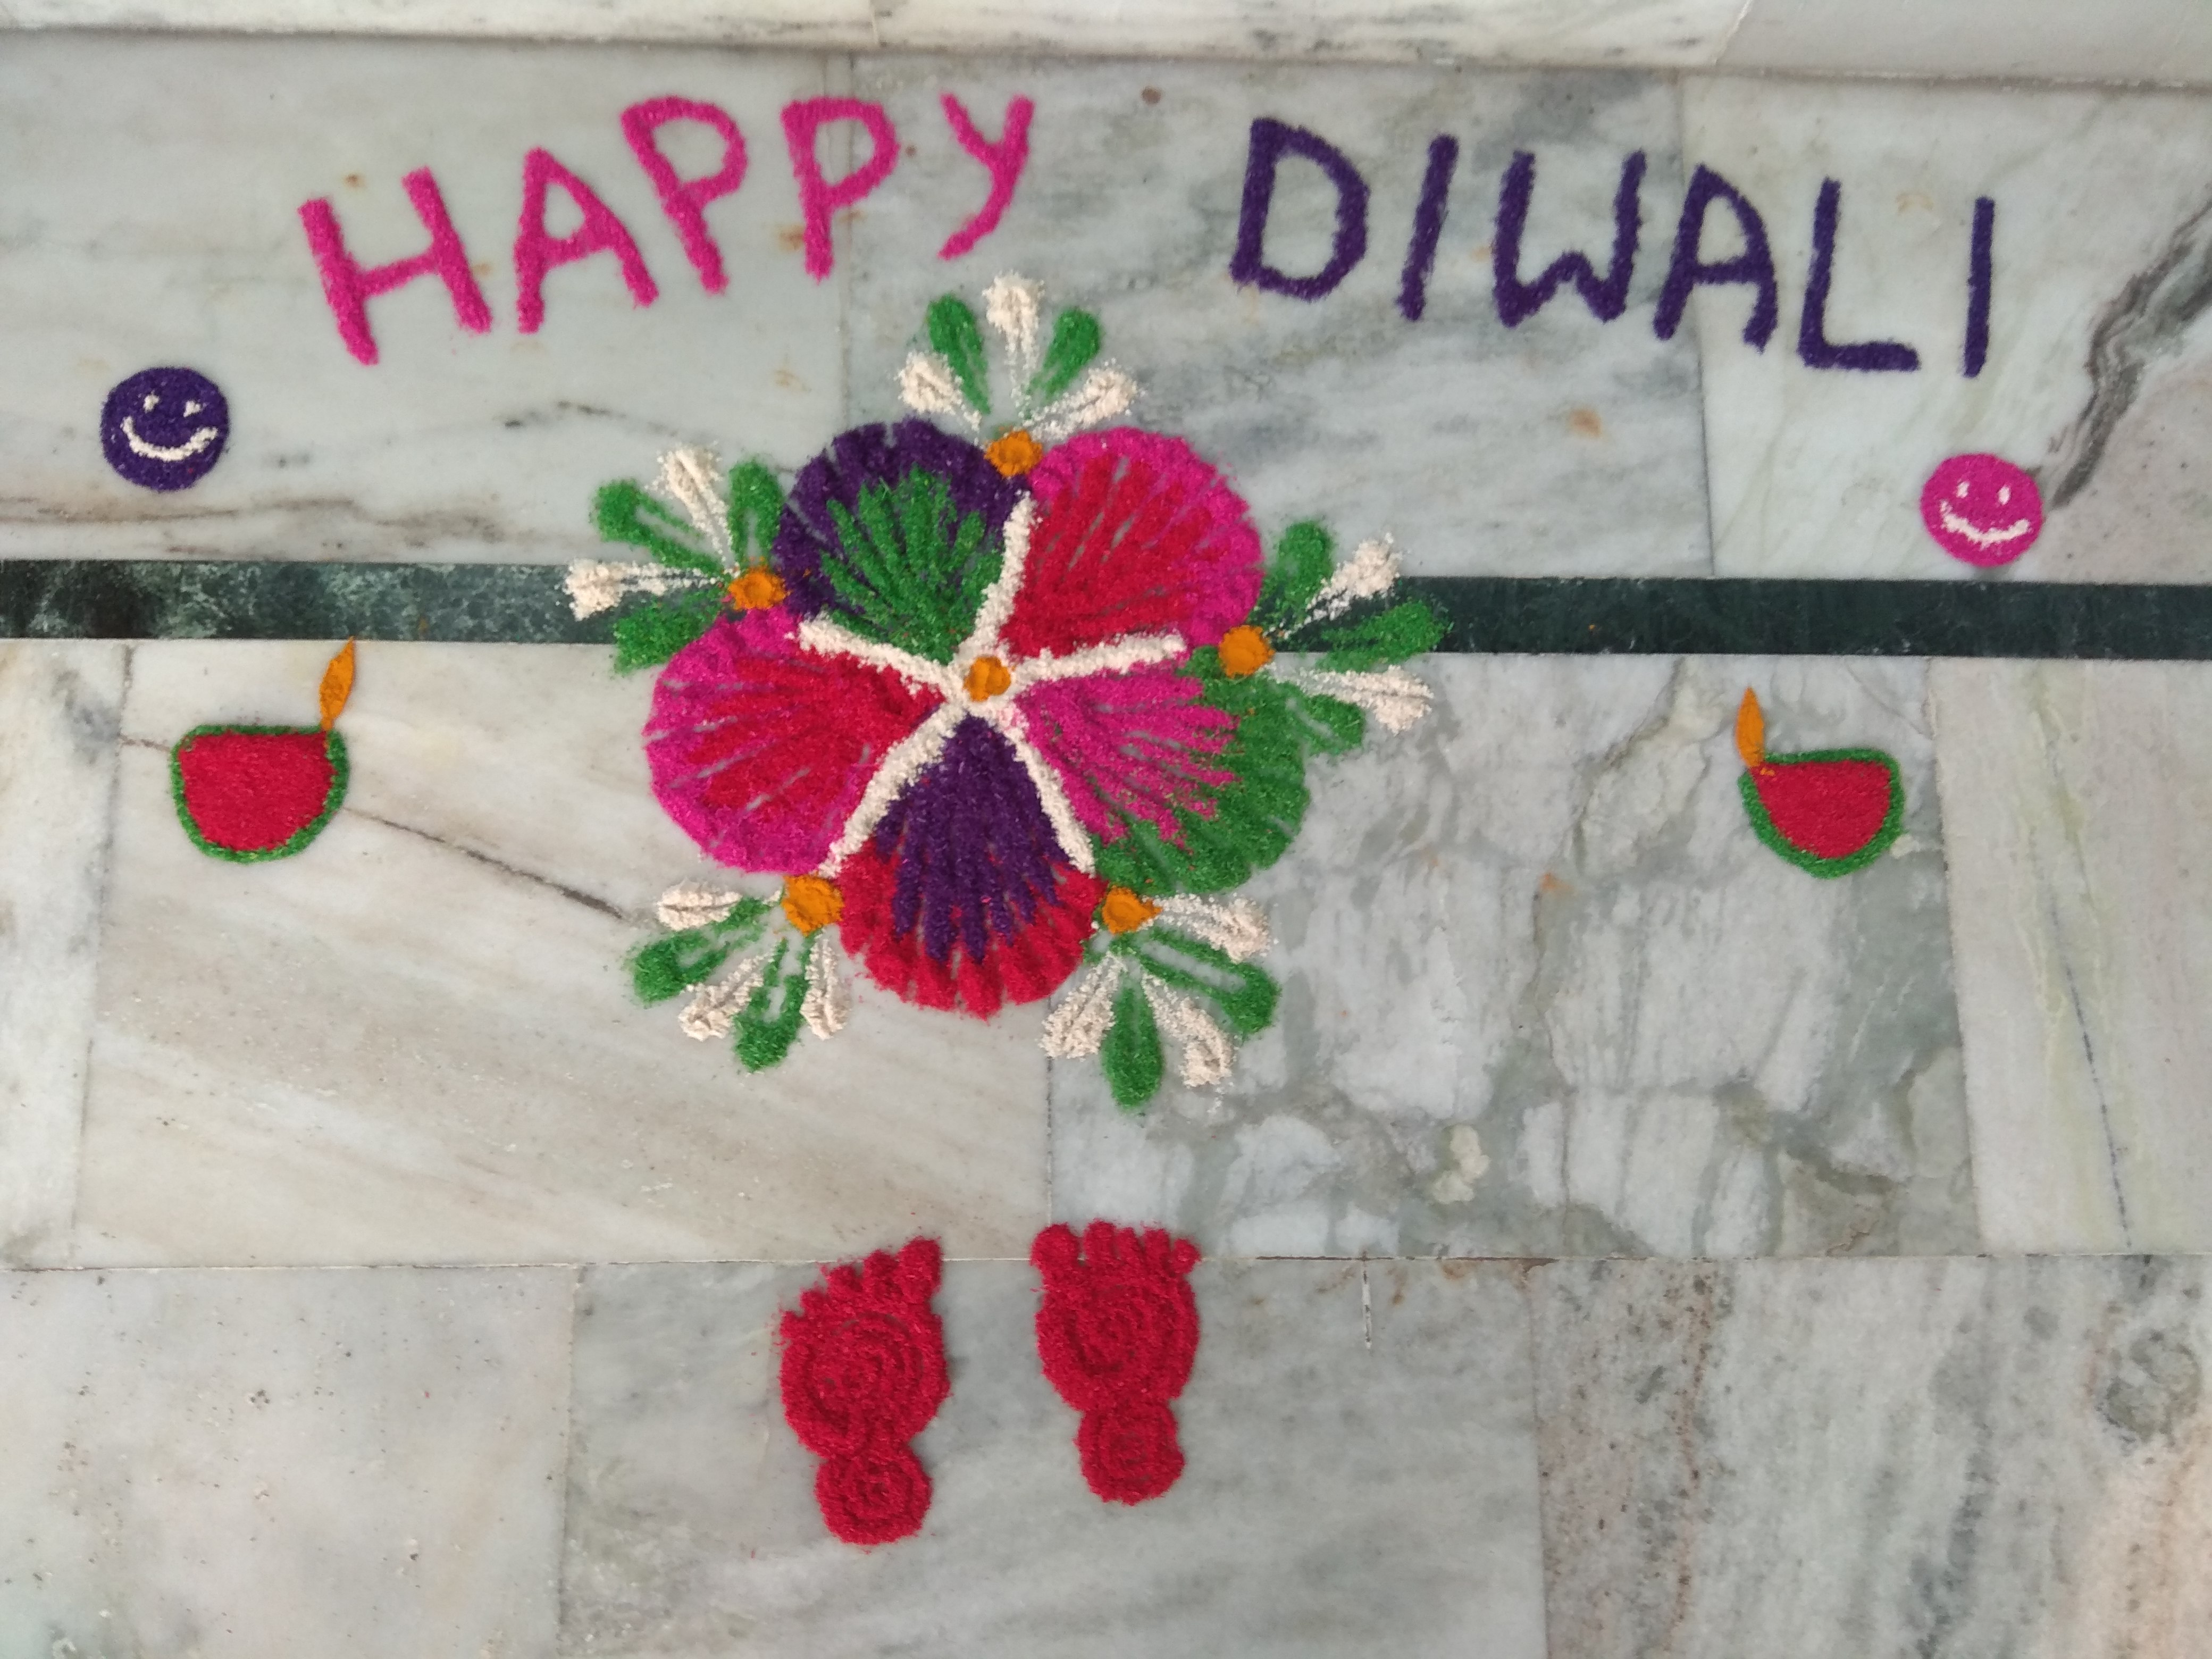 HAPPY DIWALI